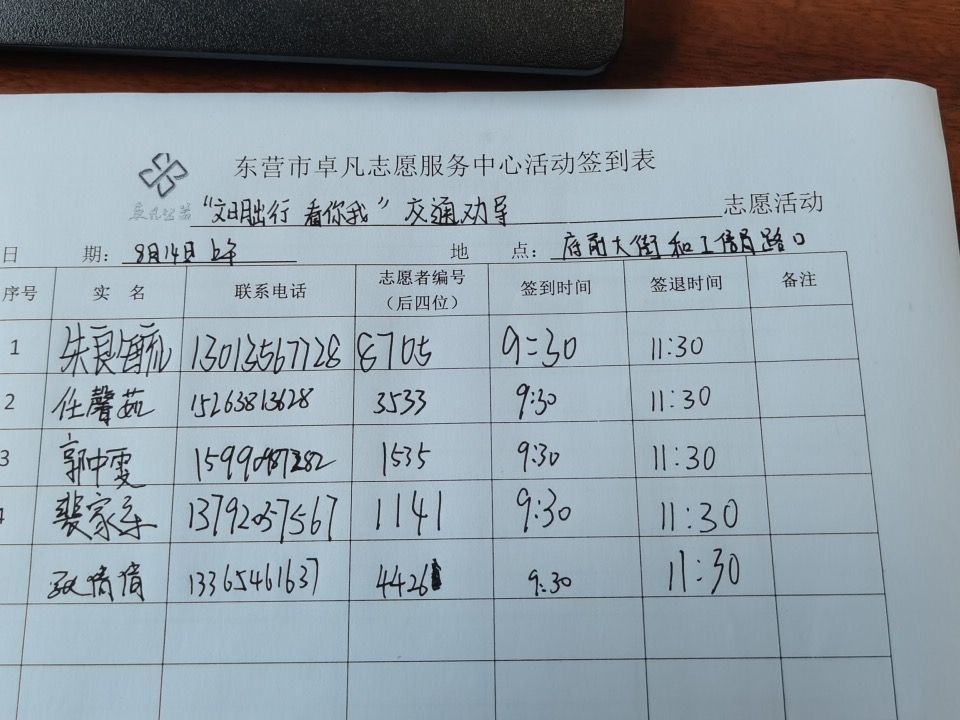 东营市卓凡志愿服务中心活动签到表
卓凡公益
“文明出行 看你我” 交通劝导 志愿活动
日 期: 8月14日上午 地 点: 府前大街和工信局路口
序号 实 名 联系电话 志愿者编号(后四位) 签到时间 签退时间 备注
1 朱良 13013567728 8705 9:30 11:30
2 任馨茹 15263813628 3533 9:30 11:30
3 郭中雯 1535 9:30 11:30
4 裴家乐 13792057567 1141 9:30 11:30
倩倩 13365461637 4426 9:30 11:30